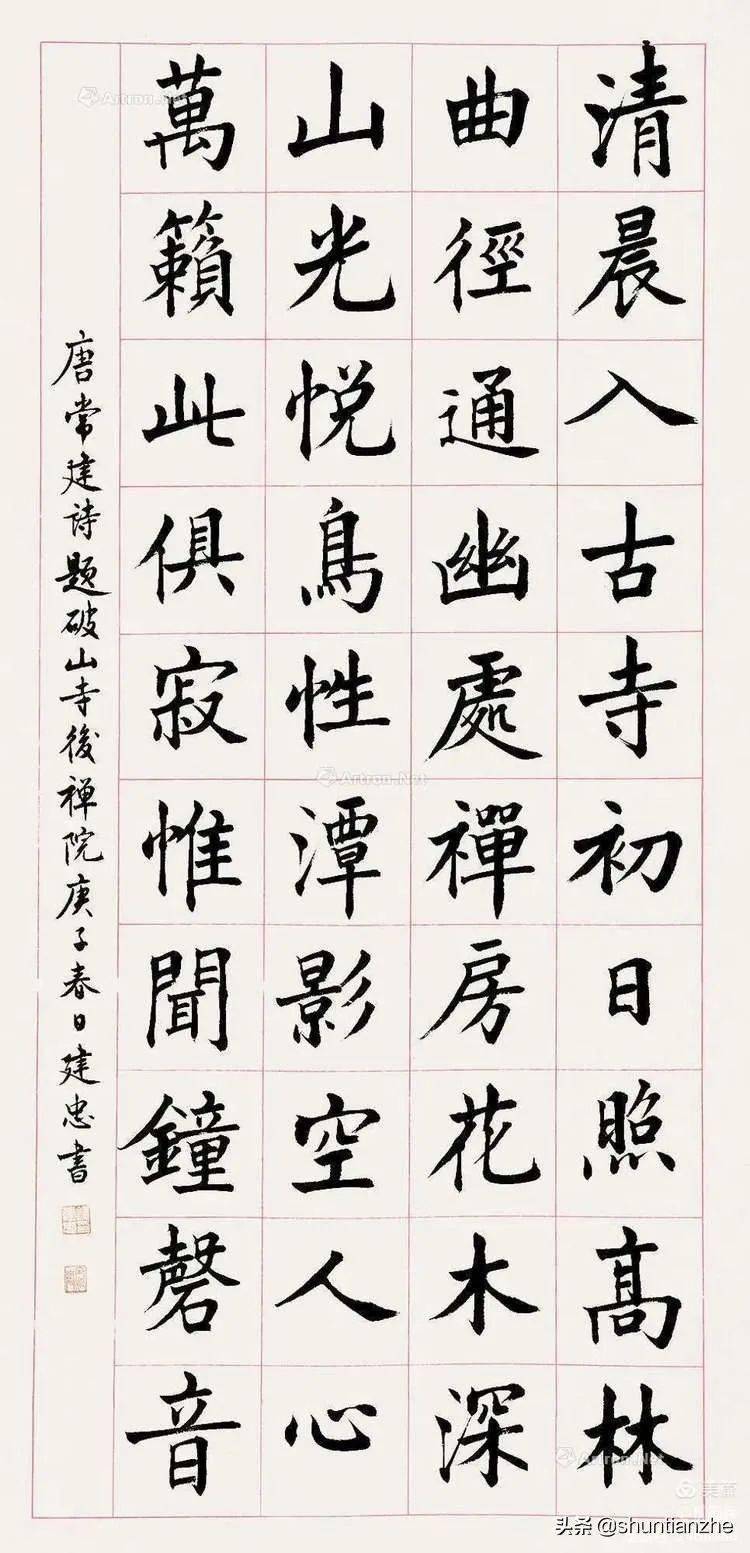 清晨入古寺初日照高林
曲徑通幽處禪房花木深
山光悦鳥性潭影空人心
萬籟此俱寂惟聞鐘磬音
唐常建诗题破山寺後禅院庚子春日建忠書
Artron.Net
Artron.Net
Artron.Net
头条 @shuntianzhe